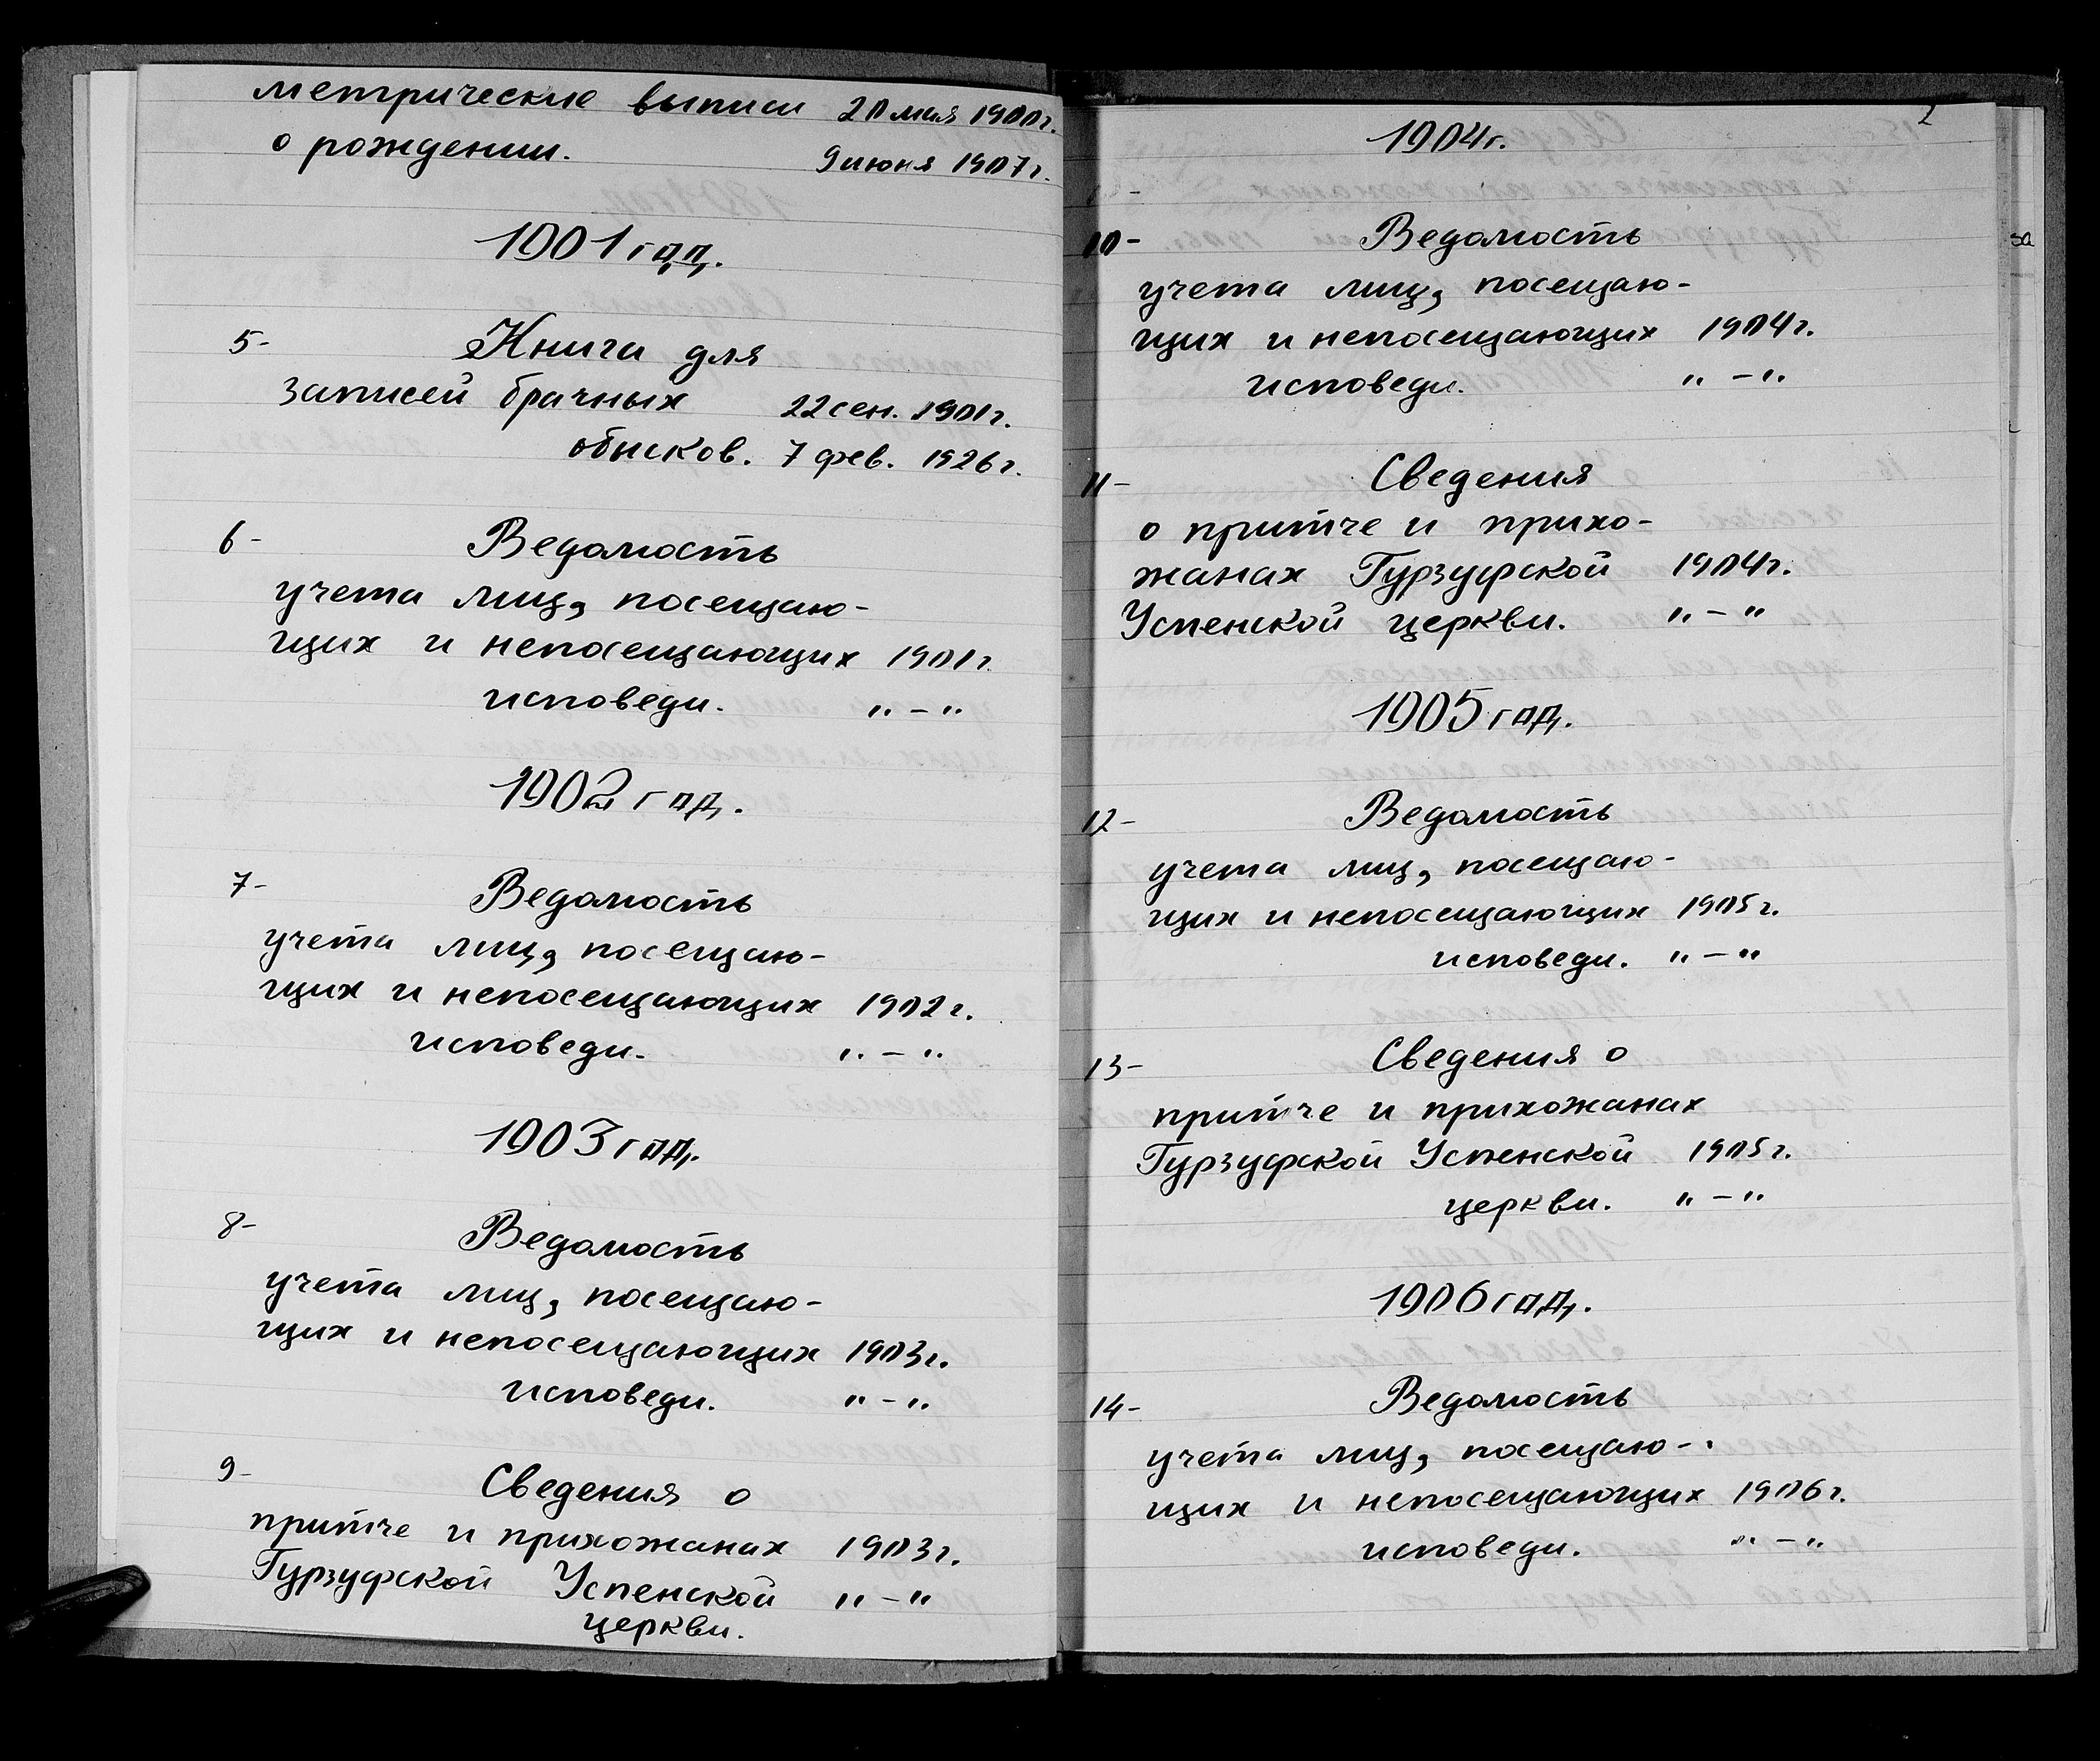 метрические выписи 20 мая 1900г.
о рождении. 9 июня 1907г.
1901 год.
5- Книга для
записей брачных 22 сен. 1901г.
обысков. 7 фев. 1926г.
6- Ведомость
учета лиц, посещаю-
щих и непосещающих 1901г.
исповеди. "-"
1902 год.
7- Ведомость
учета лиц, посещаю-
щих и непосещающих 1902г.
исповеди. "-"
1903 год.
8- Ведомость
учета лиц, посещаю-
щих и непосещающих 1903г.
исповеди. "-"
9- Сведения о
притче и прихожанах 1903г.
Гурзуфской Успенской "-"
церкви.
2
1904г.
10- Ведомость
учета лиц, посещаю-
щих и непосещающих 1904г.
исповеди. "-"
11- Сведения
о притче и прихо-
жанах Гурзуфской 1904г.
Успенской церкви. "-"
1905 год.
12- Ведомость
учета лиц, посещаю-
щих и непосещающих 1905г.
исповеди. "-"
13- Сведения о
притче и прихожанах
Гурзуфской Успенской 1905г.
церкви. "-"
1906 год.
14- Ведомость
учета лиц, посещаю-
щих и непосещающих 1906г.
исповеди. "-"